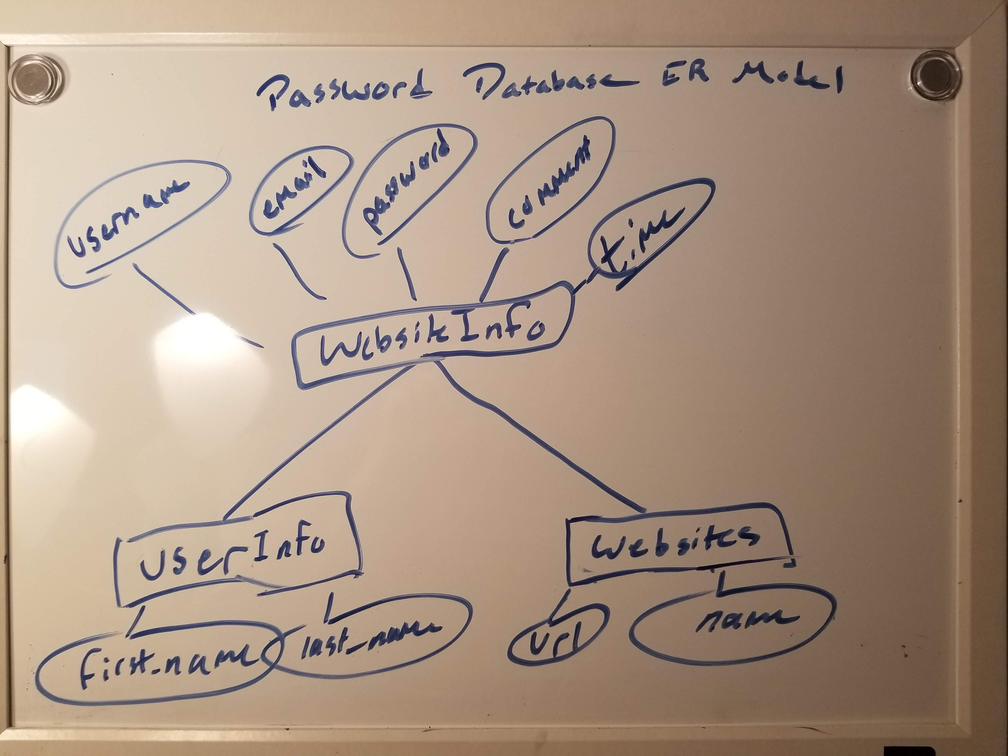 Password Database ER Model
username
email
password
comment
time
WebsiteInfo
UserInfo
Websites
first_name
last_name
url
name